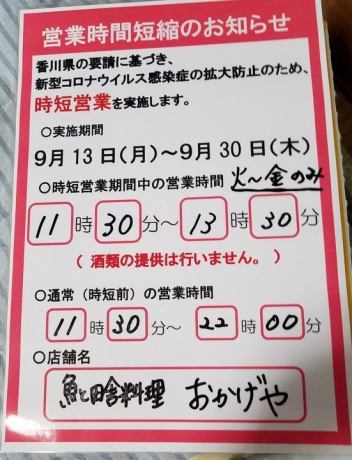 営業時間短縮のお知らせ
香川県の要請に基づき、
新型コロナウイルス感染症の拡大防止のため、
時短営業を実施します。
○実施期間
9月13日(月)～9月30日(木)
○時短営業期間中の営業時間 火～金のみ
11時30分～13時30分
（ 酒類の提供は行いません。）
○通常（時短前）の営業時間
11時30分～22時00分
○店舗名
魚と田舎料理 おかげや